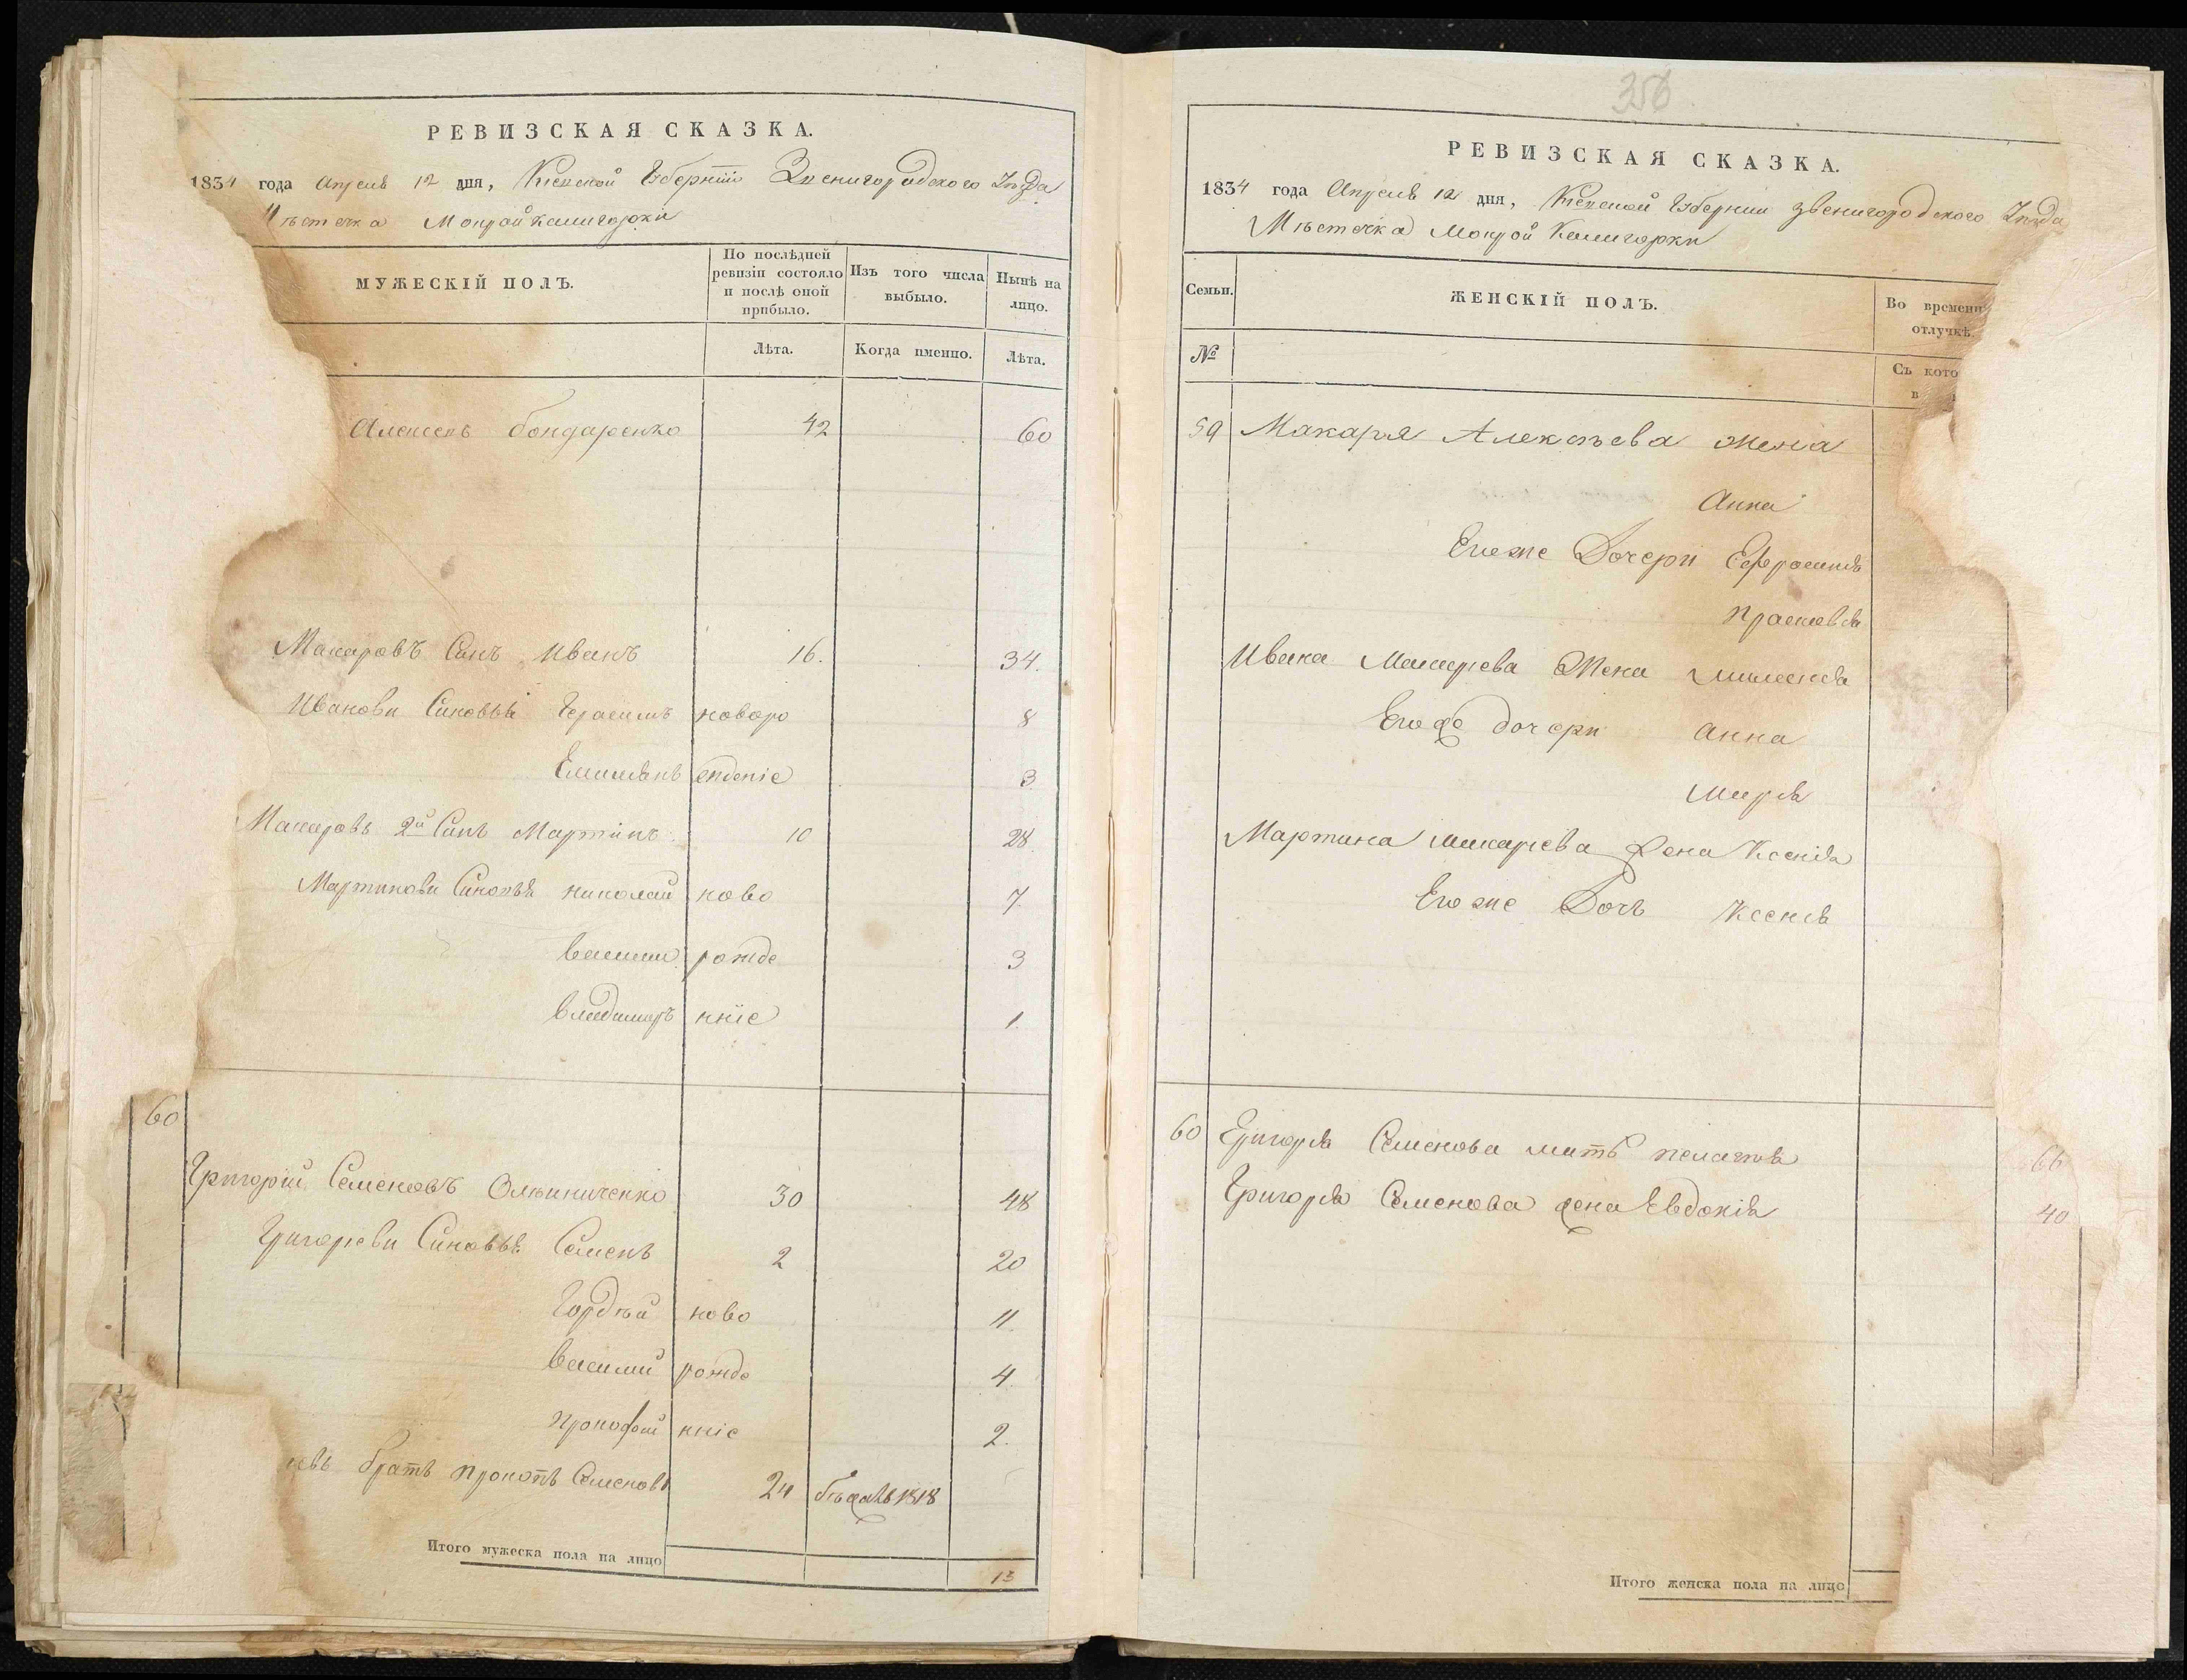 РЕВИЗСКАЯ СКАЗКА.
1834 года Апреля 12 дня, Киевской Губерніи Звенигородского Уѣзда
Мѣстечка Мокрой Калигорки
МУЖЕСКІЙ ПОЛЪ.
По послѣдней ревизіи состояло и послѣ оной прибыло.
Изъ того числа выбыло.
Нынѣ на лицо.
Лѣта.
Когда именно.
Лѣта.
Алексеевъ бондаренко 42 60
Макаровъ Синъ Иванъ 16. 34.
Иванови Синовья Герасимъ новоро 8
Емилянъ жденіе 3
Макаровъ 2й Синъ Мартинъ 10 28
Мартинови Синовья николай ново 7
василий рожде 3
владимиръ нніе 1
60
Григорий Семеновъ Олыниченко 30 48
Григориеви Синовья Семенъ 2 20
Гордѣй ново 11
василий рожде 4
Прокофий нніе 2.
братъ прокопъ Семеновъ 24 бѣжалъ 1818
Итого мужеска пола на лицо 13
356
РЕВИЗСКАЯ СКАЗКА.
1834 года Апреля 12 дня, Киевской Губернии Звенигородского Уѣзда
Мѣстечка Мокрой Калигорки
Семьи.
ЖЕНСКІЙ ПОЛЪ.
Во временн
отлучкѣ.
№
Съ кото
в
59 Макаря Алексѣева жена
Анна
Егоже Дочери Ефросиния
Прасковья
Ивана Макариева Жена
Егоже дочери Анна
Мария
Мартина макариева жена Ксения
Егоже Дочь Ксения
60 Григория Семенова мать пелагия 66
Григория Семенова жена Евдокия 40
Итого женска пола на лицо